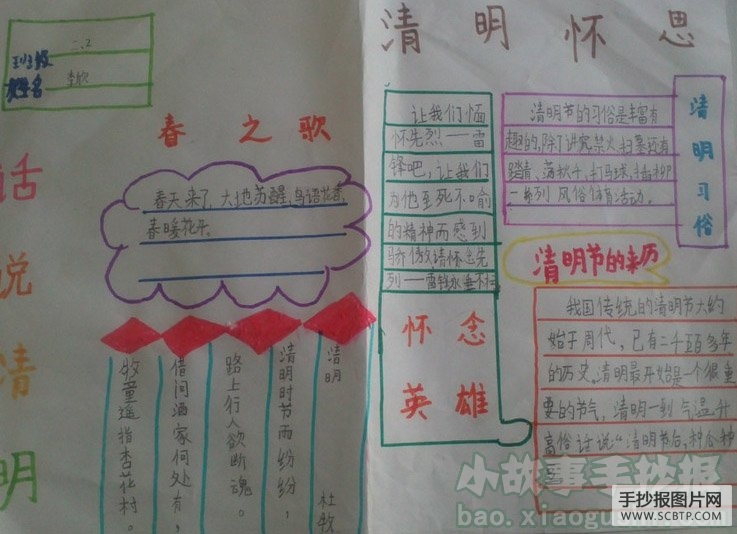 班级 二.2
姓名 李欣
话说清明
春之歌
春天来了,大地苏醒,鸟语花香,
春暖花开。
清明 杜牧
清明时节雨纷纷,
路上行人欲断魂。
借问酒家何处有,
牧童遥指杏花村。
清明怀思
让我们缅
怀先烈——雷
锋吧,让我们
为他至死不喻
的精神而感到
骄傲
列——雷锋永垂不朽
怀念
英雄
清明习俗
清明节的习俗是丰富有
趣的,除了讲究禁火、扫墓还有
踏青、荡秋千、打马球、插柳
一系列风俗体育活动。
清明节的来历
我国传统的清明节大约
始于周代,已有二千五百多年
的历史。清明最开始是一个很重
要的节气,清明一到气温升
高俗话说“清明节后,种瓜种
豆
小故事手抄报
bao.xiaogu
手抄报图片网
WWW.SCBTP.COM